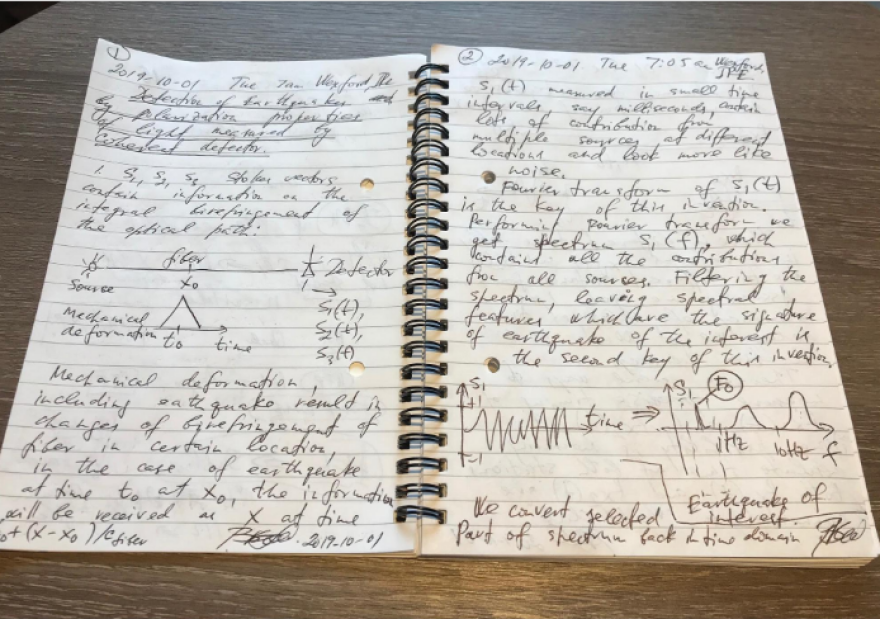 1
2019-10-01 Tue 7am Wexford,
Detection of Earthquakes
by polarization properties
of light measured by
coherent detector.
1. S1, S2, S3 stokes vectors
contain information on the
integral birefringement of
the optical path:
fiber
Source x0 Detector
Mechanical
deformation t0 time
S1(t),
S2(t),
S3(t)
Mechanical deformation,
including eathquake result in
changes of birefringement of
fiber in certain location,
in the case of earthquake
at time to at x0, the information
will be received at X at time
+(x-x0)/Cfiber 2019-10-01
2 2019-10-01 Tue 7:05 am Wexford,
S1(t) measured in small time
intervals, say milliseconds, contain
lots of contribution from
multiple sources at different
locations and look more like
noise.
Fourier transform of S1(t)
is the key of this invention.
Performing Fourier transform we
get spectrum S1(f), which
contains all the contributions
from all sources. Filtering the
spectrum, leaving spectral
features which are the signature
of earthquake of the interest is
the second key of this invention
S1 +1 -1 time ⇒ S1 F0 1Hz 10Hz f
Earthquake of
interest.
We convert selected
part of spectrum back in time domain